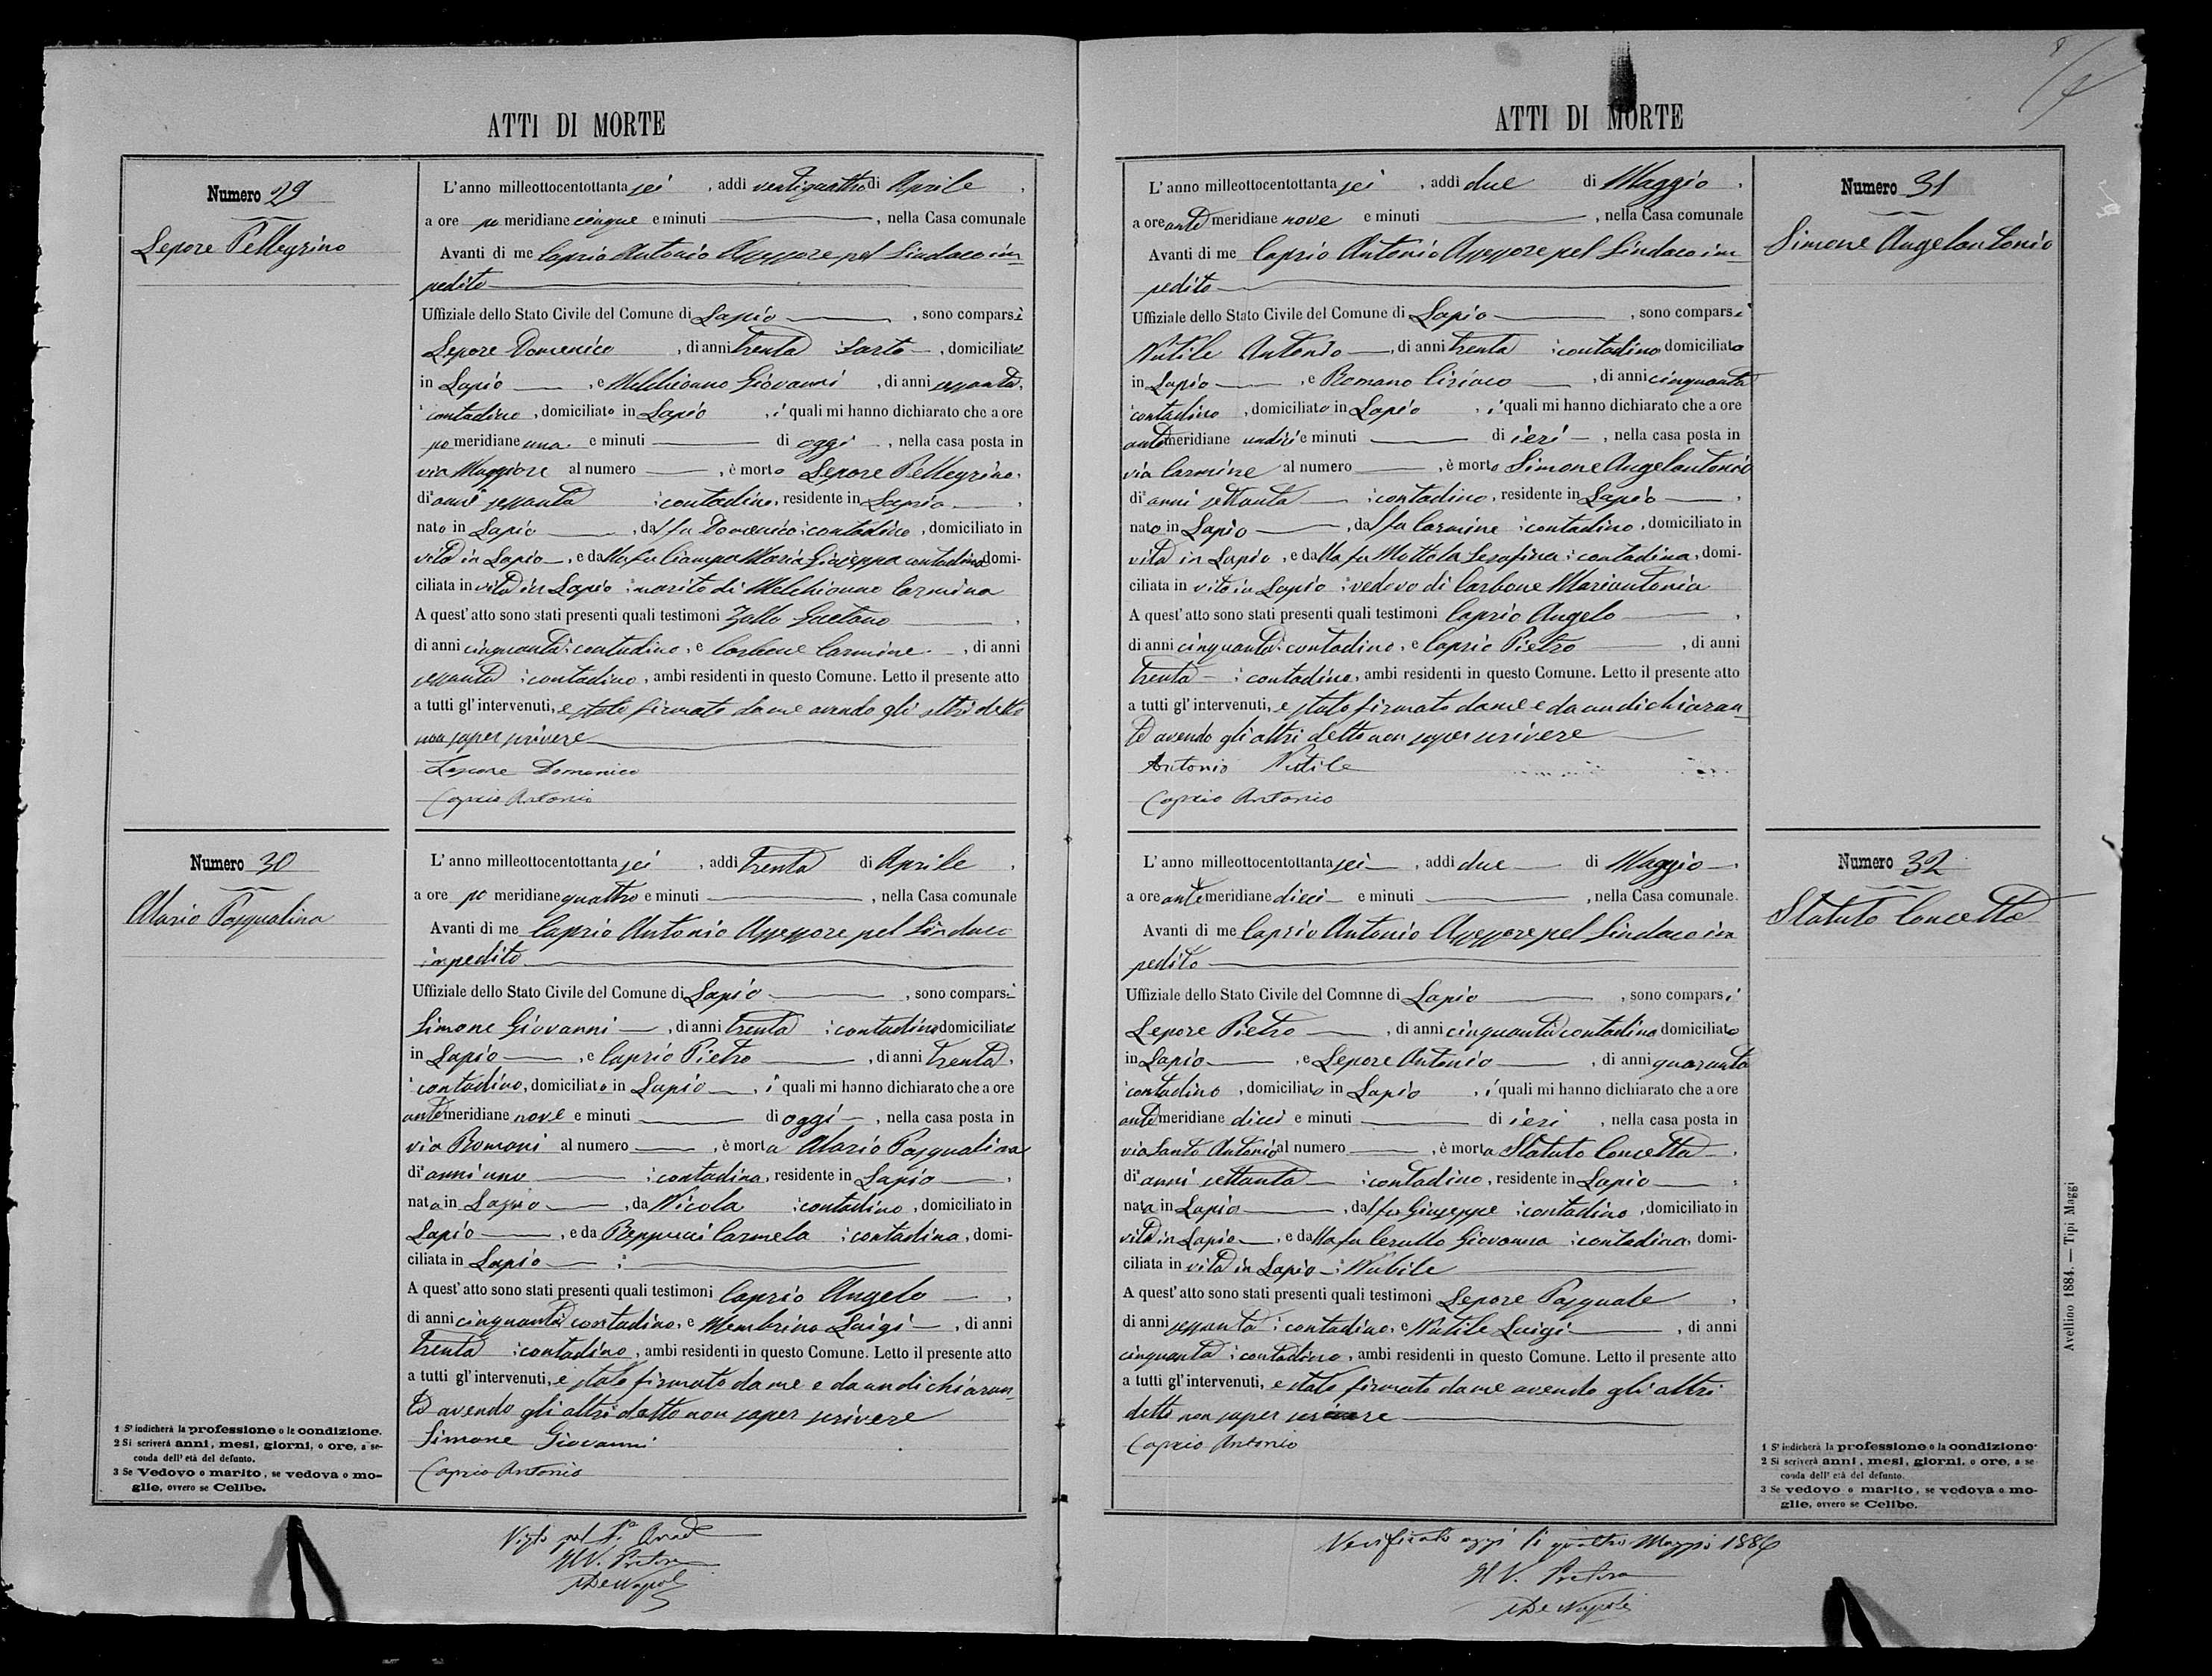 ATTI DI MORTE
Numero 29
Lepore Pellegrino
L'anno milleottocentottanta sei , addì ventiquattro di Aprile ,
a ore po meridiane cinque e minuti , nella Casa comunale
Avanti di me Caprio Antonio Assessore pel Sindaco im-
pedito
Uffiziale dello Stato Civile del Comune di Lapio , sono comparsi
Lepore Domenico , di anni trenta sarto , domiciliato
in Lapio , e Melchionno Giovanni , di anni sessanta ,
contadino , domiciliato in Lapio , i quali mi hanno dichiarato che a ore
po meridiane una e minuti di oggi , nella casa posta in
via Maggiore al numero , è morto Lepore Pellegrino
di anni sessanta contadino , residente in Lapio ,
nato in Lapio , dal fu Domenico contadino , domiciliato in
vita in Lapio , e dalla fu Ciampa Maria Giuseppa contadina domi-
ciliata in vita in Lapio marito di Melchionno Carmina
A quest'atto sono stati presenti quali testimoni Zollo Gaetano ,
di anni cinquanta contadino , e Carbone Carmine , di anni
sessanta contadino , ambi residenti in questo Comune. Letto il presente atto
a tutti gl'intervenuti, e stato firmato da me avendo gli altri detto
non saper scrivere
Lepore Domenico
Caprio Antonio
Numero 30
Alario Pasqualina
L'anno milleottocentottanta sei , addì trenta di Aprile ,
a ore po meridiane quattro e minuti , nella Casa comunale
Avanti di me Caprio Antonio Assessore pel Sindaco
impedito
Uffiziale dello Stato Civile del Comune di Lapio , sono comparsi
Simone Giovanni , di anni trenta contadino domiciliato
in Lapio , e Caprio Pietro , di anni trenta ,
contadino , domiciliato in Lapio , i quali mi hanno dichiarato che a ore
ante meridiane nove e minuti di oggi , nella casa posta in
via Romani al numero , è morta Alario Pasqualina
di anni uno contadina , residente in Lapio ,
nata in Lapio , da Nicola contadino , domiciliato in
Lapio , e da Carmela contadina , domi-
ciliata in Lapio
A quest'atto sono stati presenti quali testimoni Caprio Angelo ,
di anni cinquanta contadino , e Membrino Luigi , di anni
trenta contadino , ambi residenti in questo Comune. Letto il presente atto
a tutti gl'intervenuti, e stato firmato da me e da un dichiaran-
te avendo gli altri detto non saper scrivere
Simone Giovanni
Caprio Antonio
1 S'indicherà la professione o la condizione.
2 Si scriverà anni, mesi, giorni, o ore, a se-
conda dell'età del defunto.
3 Se Vedovo o marito, se vedova o mo-
glie, ovvero se Celibe.
Visto pel
Il V. Pretore
De Napoli
ATTI DI MORTE
Numero 31
Simone Angelantonio
L'anno milleottocentottanta sei , addì due di Maggio ,
a ore ante meridiane nove e minuti , nella Casa comunale
Avanti di me Caprio Antonio Assessore pel Sindaco im-
pedito
Uffiziale dello Stato Civile del Comune di Lapio , sono comparsi
Nutile Antonio , di anni trenta contadino domiciliato
in Lapio , e Romano Ciriaco , di anni cinquanta
contadino , domiciliato in Lapio , i quali mi hanno dichiarato che a ore
ante meridiane undici e minuti di ieri , nella casa posta in
via Carmine al numero , è morto Simone Angelantonio
di anni settanta contadino , residente in Lapio ,
nato in Lapio , dal fu Carmine contadino , domiciliato in
vita in Lapio , e dalla fu Mottola Serafina contadina , domi-
ciliata in vita in Lapio vedovo di Carbone Mariantonia
A quest'atto sono stati presenti quali testimoni Caprio Angelo ,
di anni cinquanta contadino , e Caprio Pietro , di anni
trenta contadino , ambi residenti in questo Comune. Letto il presente atto
a tutti gl'intervenuti, e stato firmato da me e da un dichiaran-
te avendo gli altri detto non saper scrivere
Antonio Nutile
Caprio Antonio
Numero 32
Statuto Concetta
L'anno milleottocentottanta sei , addì due di Maggio ,
a ore ante meridiane dieci e minuti , nella Casa comunale.
Avanti di me Caprio Antonio Assessore pel Sindaco im
pedito
Uffiziale dello Stato Civile del Comnne di Lapio , sono comparsi
Lepore Pietro , di anni cinquanta contadino domiciliato
in Lapio , e Lepore Antonio , di anni quaranta
contadino , domiciliato in Lapio , i quali mi hanno dichiarato che a ore
ante meridiane dieci e minuti di ieri , nella casa posta in
via Santo Antonio al numero , è morta Statuto Concetta ,
di anni settanta contadina , residente in Lapio ,
nata in Lapio , dal fu Giuseppe contadino , domiciliato in
vita in Lapio , e dalla fu Cerullo Giovanna contadina , domi-
ciliata in vita in Lapio Nubile
A quest'atto sono stati presenti quali testimoni Lepore Pasquale ,
di anni sessanta contadino , e Nutile Luigi , di anni
cinquanta contadino , ambi residenti in questo Comune. Letto il presente atto
a tutti gl'intervenuti, e stato firmato da me avendo gli altri
detto non saper scrivere
Caprio Antonio
1 S'indicherà la professione o la condizione.
2 Si scriverà anni, mesi, giorni, o ore, a se
conda dell'età del defunto.
3 Se vedovo o marito, se vedova o mo-
glie, ovvero se Celibe.
Verificato oggi li quattro Maggio 1886
Il V. Pretore
De Napoli
Avellino 1884.—Tipi Maggi